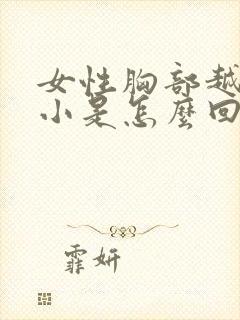 女性胸部越
小是怎麼回
霏妍